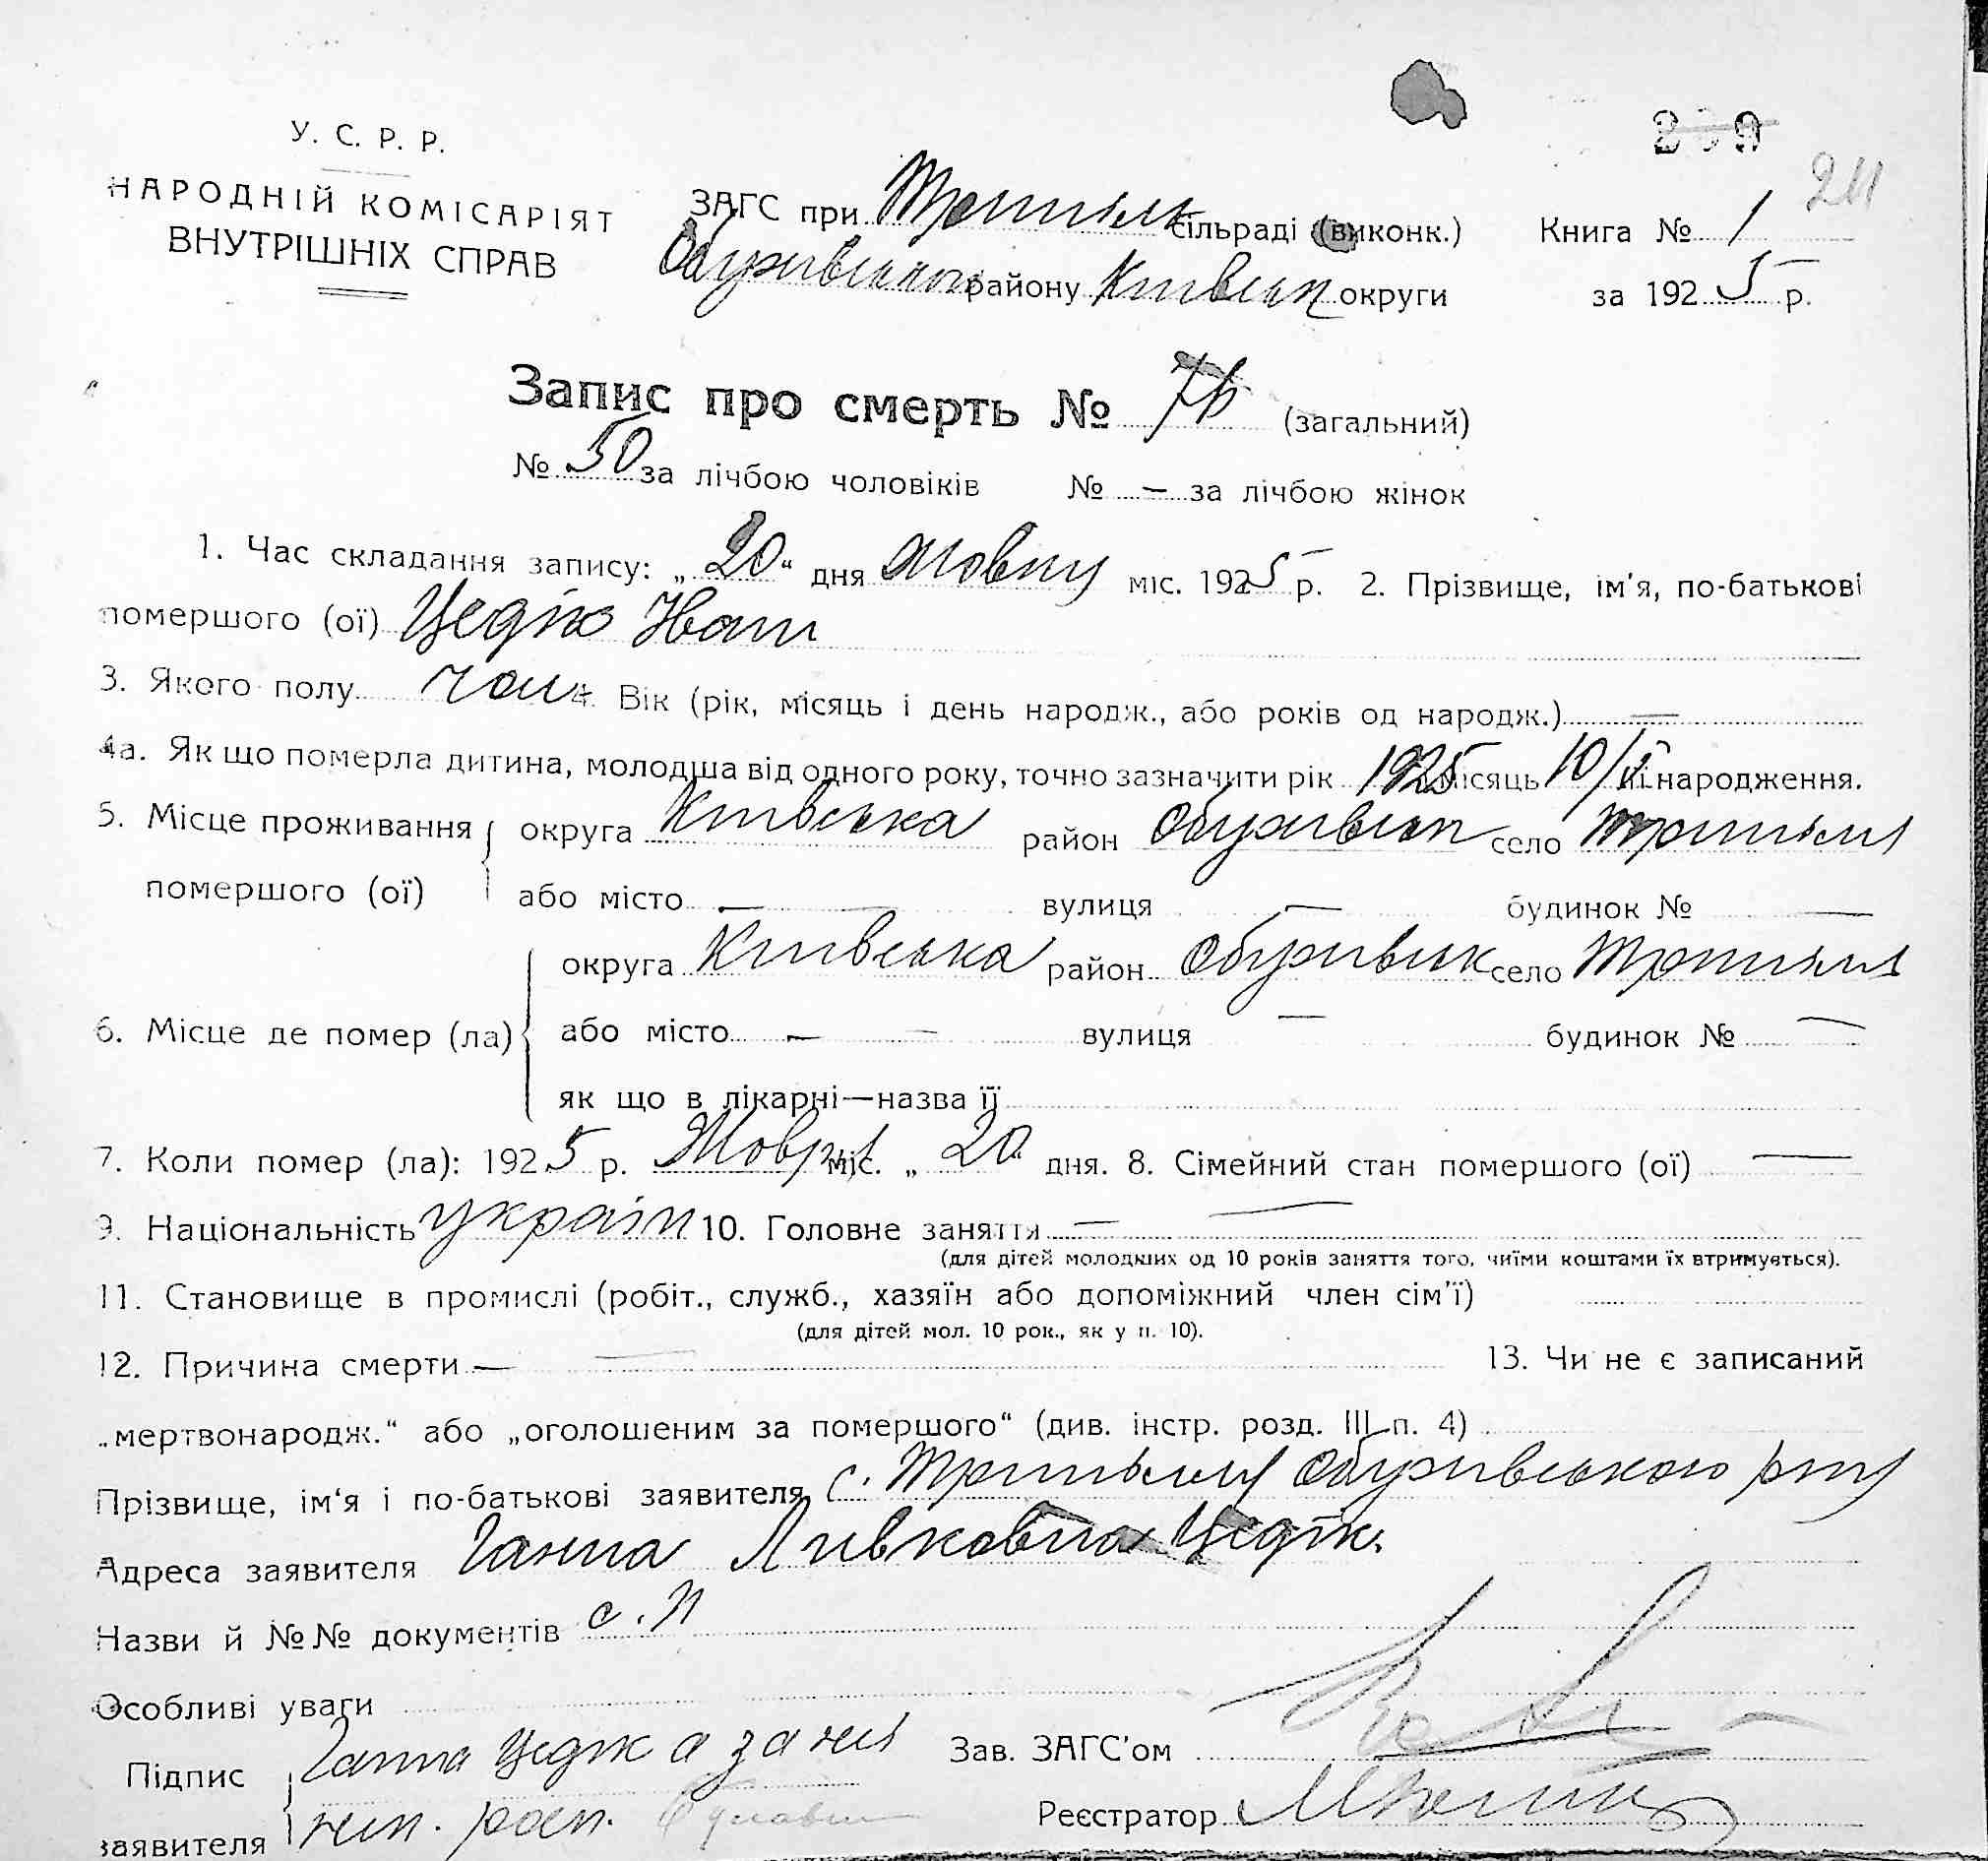 У. С. Р. Р.
НАРОДНІЙ КОМІСАРІЯТ
ВНУТРІШНІХ СПРАВ
211
ЗАГС при Трипіль сільраді (виконк.) Книга № 1
Обухівського району Київськ округи за 1925 р.
Запис про смерть № (загальний)
№ 50 за лічбою чоловіків № — за лічбою жінок
1. Час складання запису: „20“ дня Жовтн міс. 1925 р. 2. Прізвище, ім'я, по-батькові
помершого (ої) Цедік Іван
3. Якого полу чол 4. Вік (рік, місяць і день народж., або років од народж.) —
4а. Як що померла дитина, молодша від одного року, точно зазначити рік 1925 місяць 10/ народження.
5. Місце проживання округа Київська район Обухівськ село Трипілля
помершого (ої) або місто — вулиця — будинок № —
округа Київська район Обухівськ село Трипілля
6. Місце де помер (ла) або місто — вулиця — будинок № —
як що в лікарні—назва її
7. Коли помер (ла): 1925 р. Жовтн міс. „20“ дня. 8. Сімейний стан помершого (ої) —
9. Національність україн 10. Головне заняття — —
(для дітей молодших од 10 років заняття того, чиїми коштами їх втримується).
11. Становище в промислі (робіт., служб., хазяїн або допоміжний член сім'ї)
(для дітей мол. 10 рок., як у п. 10).
12. Причина смерти — — 13. Чи не є записаний
„мертвонародж.“ або „оголошеним за помершого“ (див. інстр. розд. III п. 4)
Прізвище, ім'я і по-батькові заявителя с. Трипілля Обухівського р-ну
Адреса заявителя Ганна Левковна Цедік.
Назви й №№ документів
Особливі уваги
Підпис Ганна Цедік а за неї Зав. ЗАГС'ом
заявителя неп. росп. Реєстратор